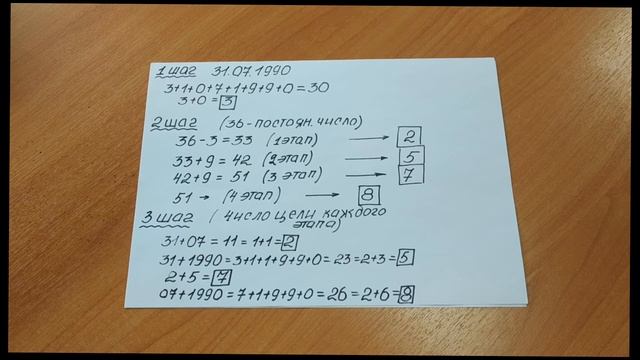 1 шаг 31.07.1990
3+1+0+7+1+9+9+0=30
3+0=3
2шаг (36-постоян.число)
36-3=33 (1этап) → 2
33+9=42 (2этап) → 5
42+9=51 (3 этап) → 7
51 → (4 этап) → 8
3 шаг (число цели каждого
этапа)
31+07=11=1+1=2
31+1990=3+1+1+9+9+0=23=2+3=5
2+5=7
07+1990=7+1+9+9+0=26=2+6=8